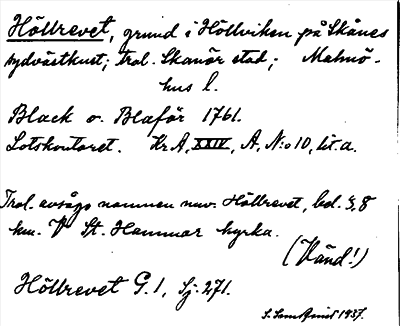 Höllrevet, grund i Höllviken på Skånes
sydvästkust; trol. Skanör stad; Malmö-
hus l.
Black o. Blaför 1761.
Lotskontoret. Kr.A, XXIV, A, N:o 10, lit. a.
Trol. avsågs namnen nuv. Höllrevet, bel. 3,8
km. V St. Hammar kyrka.
(Vänd!)
Höllrevet G. 1, Sj: 271.
1937.